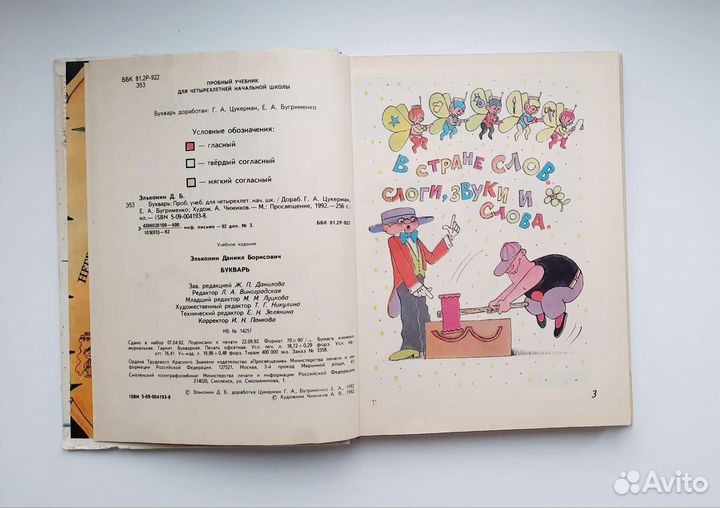 ББК 81.2Р-922
Э53
ПРОБНЫЙ УЧЕБНИК
ДЛЯ ЧЕТЫРЕХЛЕТНЕЙ НАЧАЛЬНОЙ ШКОЛЫ
Букварь доработан: Г. А. Цукерман, Е. А. Бугрименко
Условные обозначения:
— гласный
— твёрдый согласный
— мягкий согласный
Эльконин Д. Б.
Э53 Букварь: Проб. учеб. для четырехлет. нач. шк. / Дораб. Г. А. Цукерман,
Е. А. Бугрименко; Худож. А. Чижиков. — М.: Просвещение, 1992. — 256 с.
ил. — ISBN 5-09-004193-8.
Э 4306020100—600 инф. письмо — 92 доп. № 3.
103(03)—92
ББК 81.2Р-922
Учебное издание
Эльконин Даниил Борисович
БУКВАРЬ
Зав. редакцией Ж. П. Данилова
Редактор Л. А. Виноградская
Младший редактор М. М. Луцкова
Художественный редактор Т. Г. Никулина
Технический редактор Е. Н. Зелянина
Корректор И. Н. Панкова
ИБ № 14257
Сдано в набор 07.04.92. Подписано к печати 22.09.92. Формат 70×90
журнальная. Гарнит. Букварная. Печать офсетная. Усл. печ. л. 18,72+0,29 форз. Усл. кр.-
отт. 76,41. Уч.-изд. л. 19,98+0,48 форз. Тираж 400 000 экз. Заказ № 3358.
Ордена Трудового Красного Знамени издательство «Просвещение» Министерства печати и ин-
формации Российской Федерации. 127521, Москва, 3-й проезд Марьиной рощи, 41.
Смоленский полиграфкомбинат Министерства печати и информации Российской Федерации.
214020, Смоленск, ул. Смольянинова, 1.
ISBN 5-09-004193-8
© Эльконин Д. Б., доработка Цукерман Г. А., Бугрименко Е. А., 1992
© Художник Чижиков А. В., 1992
В СТРАНЕ СЛОВ.
СЛОГИ, ЗВУКИ И
СЛОВА.
1*
3
Avito